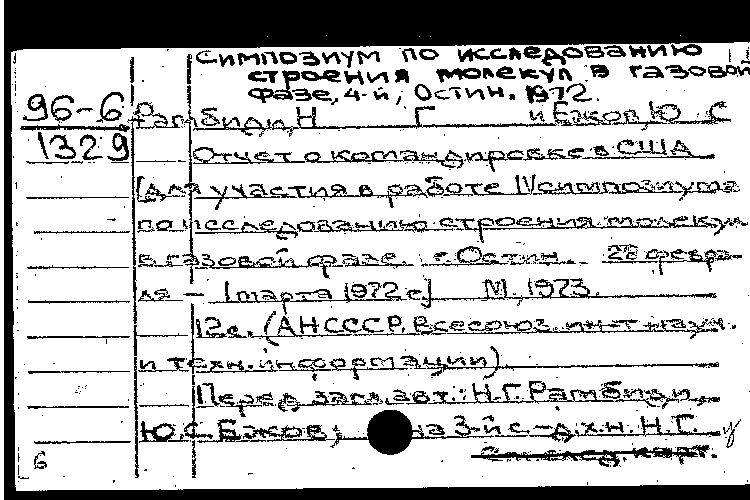 Симпозиум по исследованию
строения молекул в газовой
фазе, 4-й, Остин. 1972.
96-6
1329
Рамбиди, Н Г и Ежов, Ю С
Отчет о командировке в США
[для участия в работе IV симпозиума
по исследованию строения молекул
в газовой фазе. г. Остин. 28 февра-
ля - 1 марта 1972 г.] М., 1973.
12 с. (АН СССР. Всесоюз. ин-т науч.
и техн. информации)
Перед загл. авт.: Н.Г. Рамбиди,
Ю.С. Ежов; на 3-й с. - д.х.н. Н.Г.
См. след. карт.
6